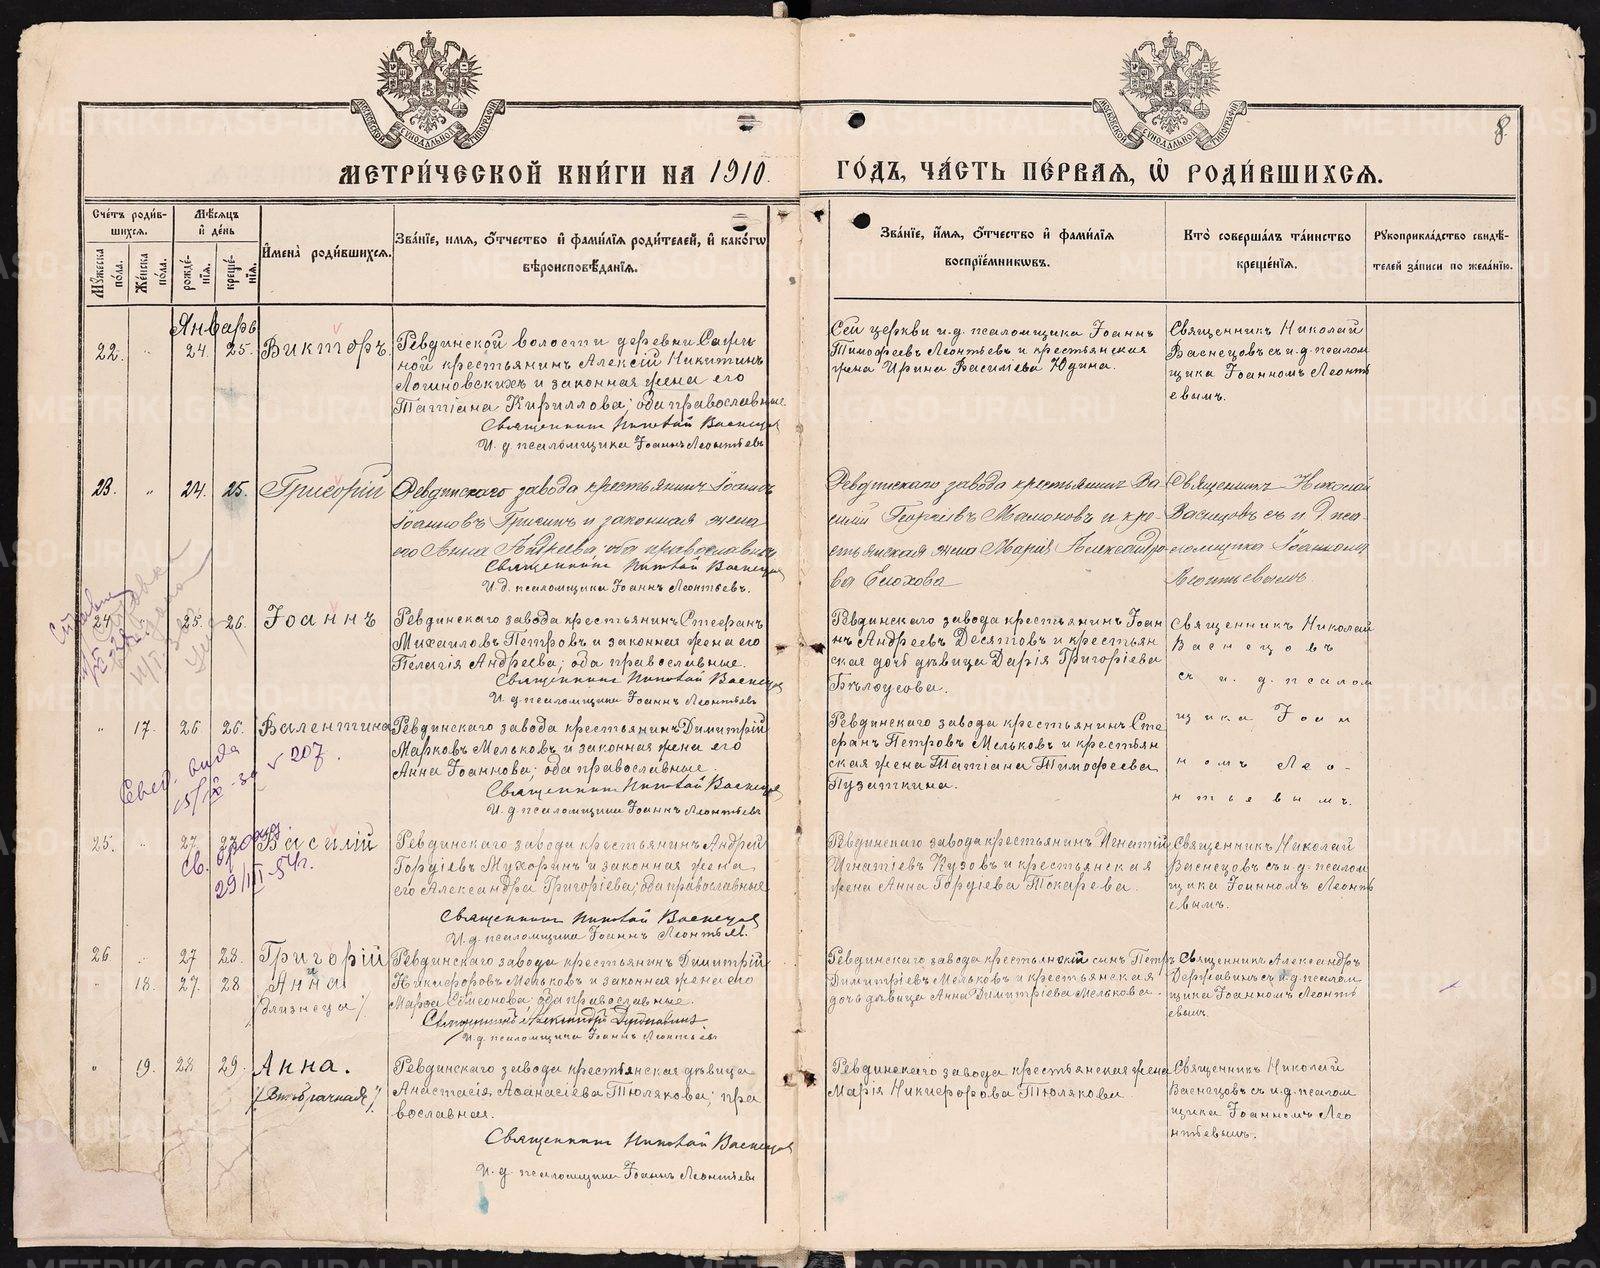 МЕТРИ́ЧЕСКОЙ КНИ́ГИ НА 1910.
ГО́ДЪ, ЧА́СТЬ ПЕ́РВАѦ, Ѡ҆ РОДИ́ВШИХСѦ.
8
Сче́тъ роди́в-
шихся.
Мѣ́сяцъ
и҆ де́нь
И҆мена̀ роди́вшихся.
Зва́нїе, имя, ѻ҆́тчество и҆ фами́лїя роди́телей, и҆ како́гѡ
вѣроисповѣ́данїя.
Зва́нїе, и҆́мя, ѻ҆́тчество и҆ фами́лїя
воспрїе́мникѡвъ.
Кто̀ соверша́лъ та́инство
креще́нїя.
Рꙋкоприкла́дство свидѣ́-
телей за́писи по жела́нїю.
Мꙋ́жеска
по́ла.
Же́нска
по́ла.
рожде́-
нїя.
креще́-
нїя.
Январь
22. " 24. 25. Викторъ.
Ревдинской волости деревни
ной крестьянинъ Алексій Никитинъ
Логиновскихъ и законная жена его
Татіана Кириллова; оба православные.
Священникъ Николай Васнецов
И. д. псаломщика Іоаннъ Леонтьевъ
Сей церкви и.д. псаломщика Іоаннъ
Тимофеевъ Леонтьевъ и крестьянская
жена Ирина Василіева Юдина.
Священникъ Николай
Васнецовъ съ и.д. псалом
щика Іоанномъ Леонть
евымъ.
23. " 24. 25. Григорій
Ревдинскаго завода крестьянинъ Іоаннъ
Іоанновъ и законная жена
его Анна оба православные
Священникъ Николай Васнецов
И.д. псаломщика Іоаннъ Леонтьевъ.
Ревдинскаго завода крестьянинъ Ва
силій Георгіевъ Мамоновъ и кре-
стьянская жена Марія Александро
ва Елохова
Священникъ Николай
Васнецовъ съ и. д. пса-
ломщика Іоанномъ
Леонтьевымъ
24 " 25. 26. Іоаннъ
Ревдинскаго завода крестьянинъ Стефанъ
Михаиловъ Петровъ и законная жена его
Пелагія Андреева; оба православные.
Священникъ Николай Васнецов
И. д. псаломщика Іоаннъ Леонтьевъ
Ревдинскаго завода крестьянинъ Іоан
нъ Андреевъ Десятовъ и крестьян
ская дочь дѣвица Дарія Григоріева
Бѣлоусова.
Священникъ Николай
Васнецовъ
съ и. д. псалом
щика Іоан
номъ Лео-
нтьевымъ.
" 17. 26 26. Валентина
Ревдинскаго завода крестьянинъ Димитрій
Марковъ Мельковъ и законная жена его
Анна Іоаннова; оба православные.
Священникъ Николай Васнецов
И. д. псаломщика Іоаннъ Леонтьевъ
Ревдинскаго завода крестьянинъ Сте
фанъ Петровъ Мельковъ и крестьян
ская жена Татіана Тимофеева
Пузаткина.
207.
25. " 27 27 Василій
Ревдинскаго завода крестьянинъ Андрей
Гордіевъ Мухоринъ и законная жена
его Александра Григоріева; оба православные
Священникъ Николай Васнецов
И. д. псаломщика Іоаннъ Леонтьев.
Ревдинскаго завода крестьянинъ Игнатій
Игнатіевъ Кузовъ и крестьянская
жена Анна Гордіева Токарева.
Священникъ Николай
Васнецовъ съ и.д. псалом
щика Іоанномъ Леонть
евымъ.
29/III-54г.
26 " 27 28. Григорій
и
" 18. 27. 28 Анна
/близнецы/
Ревдинскаго завода крестьянинъ Димитрій
Никифоровъ Мельковъ и законная жена его
Марфа Семеонова; оба православные.
Священникъ Александръ Державинъ
И.д. псаломщика Іоаннъ Леонтьев
Ревдинскаго завода крестьянскій сынъ Петръ
Димитріевъ Мельковъ и крестьянская
дочь дѣвица Анна Димитріева Мелькова.
Священникъ Александръ
Державинъ съ и.д. псалом
щика Іоанномъ Леонть
евымъ.
" 19. 28 29. Анна.
/Внебрачная/
Ревдинскаго завода крестьянская дѣвица
Анастасія Аѳанасіева Тюлякова; пра
вославная.
Священникъ Николай Васнецов
И. д. псаломщика Іоаннъ Леонтьевъ
Ревдинскаго завода крестьянская жена
Марія Никифорова Тюлякова
Священникъ Николай
Васнецовъ съ и.д. псалом
щика Іоанномъ Лео
нтьевымъ.
METRIKI.GASO-URAL.RU